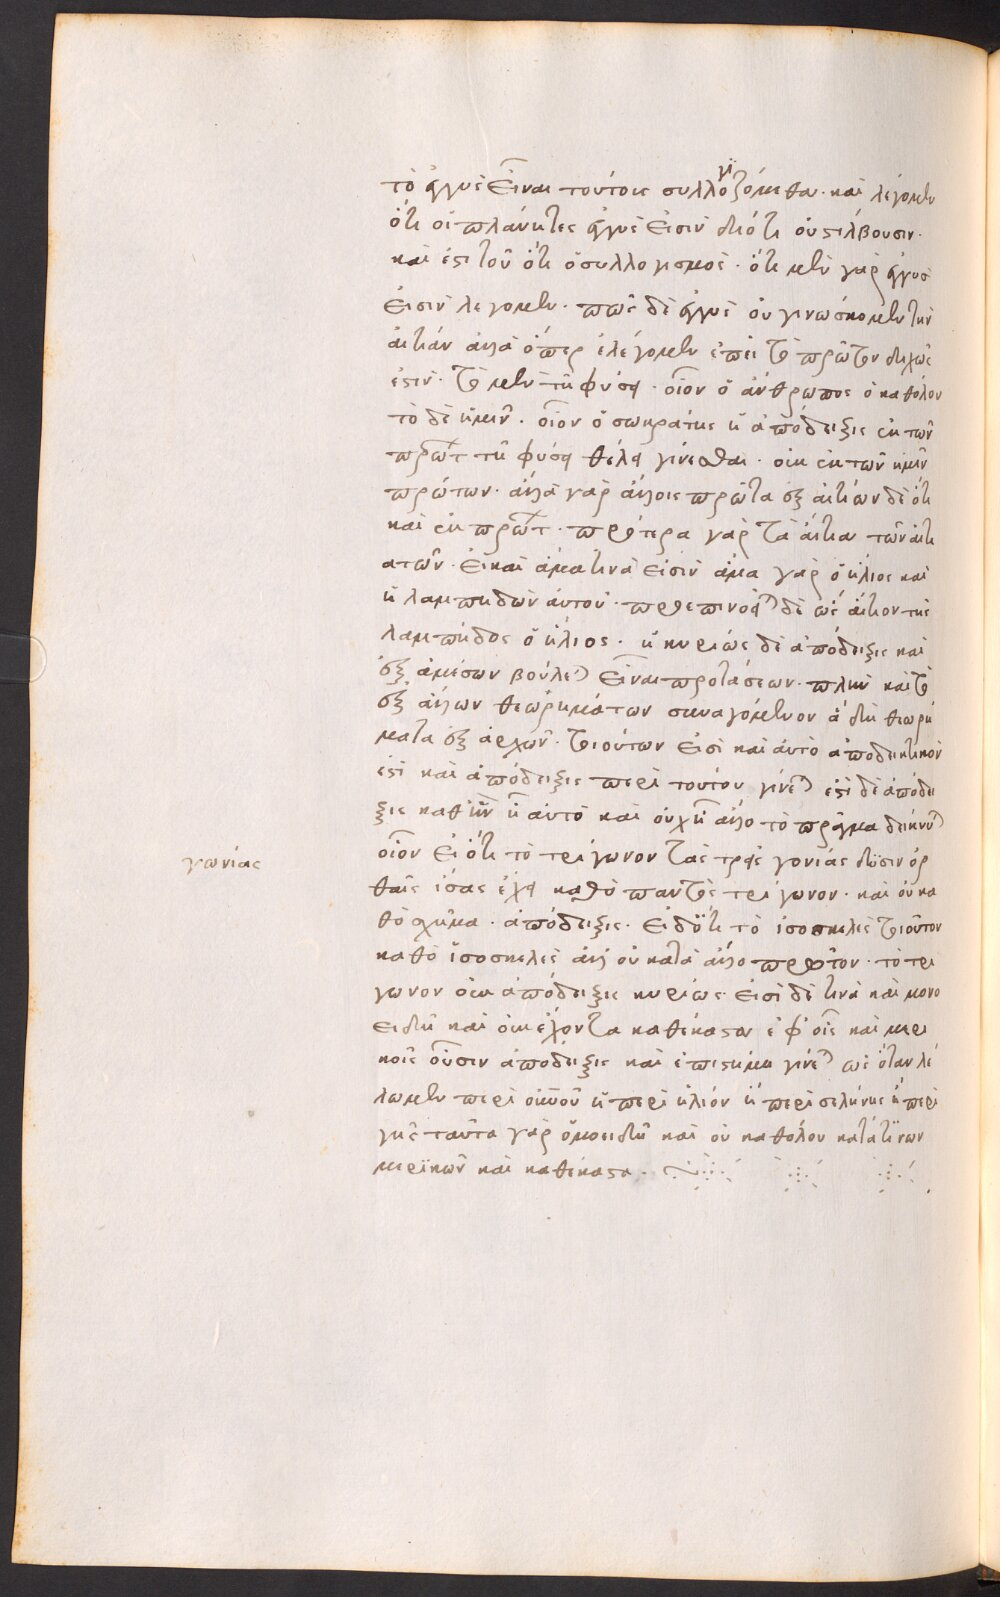 τὸ ἐγγὺς εἶναι τούτοις συλλογιζόμεθα· καὶ λέγομεν
ὅτι οἱ πλάνητες ἐγγύς εἰσιν διότι οὐ στίλβουσιν·
καὶ ἔστι τοῦ ὅτι ὁ συλλογισμός· ὅτι μὲν γὰρ ἐγγύς
εἰσιν λέγομεν· πῶς δὲ ἐγγὺς οὐ γινώσκομεν τὴν
αἰτίαν ἀλλὰ ὅπερ ἐλέγομεν ἐπεὶ τὸ πρῶτον διχῶς
ἐστιν· τὸ μὲν τῇ φύσει· οἷον ὁ ἄνθρωπος ὁ καθόλου
τὸ δὲ ἡμῖν· οἷον ὁ σωκράτης ἡ ἀπόδειξις ἐκ τῶν
πρώτ τῇ φύσει θέλει γίνεσθαι· οὐκ ἐκ τῶν ἡμῖν
πρώτων· ἄλλα γὰρ ἄλλοις πρῶτα ἐξ αἰτίων δὲ ὅτι
καὶ ἐκ πρώτ· πρότερα γὰρ τὰ αἴτια τῶν αἰτι
ατῶν· εἰ καὶ ἅμα τινά εἰσιν ἅμα γὰρ ὁ ἥλιος καὶ
ἡ λαμπηδὼν αὐτοῦ· δὲ ὡς αἴτιον τῆς
λαμπηδος ὁ ἥλιος· ἡ κυρίως δὲ ἀπόδειξις καὶ
ἐξ ἀμέσων βούλε εἶναι προτάσεων· πλὴν καὶ τὸ
ἐξ ἄλλων θεωρημάτων συναγόμενον ἃ δὴ θεωρή
ματα ἐξ ἀρχῶν· τοιούτων εἰσὶ καὶ αὐτὸ ἀποδεικτικόν
ἐστι καὶ ἀπόδειξις περὶ τούτου γίνε ἔστι δὲ ἀπόδει
ξις καθ ἣν ᾗ αὐτὸ καὶ οὐχ ᾗ ἄλλο τὸ πρᾶγμα δείκνυ
οἷον εἰ ὅτι τὸ τρίγωνον τὰς τρεῖς γονίας δυσὶν ὀρ
θαῖς ἴσας ἔχει καθὸ παντὸς τρίγωνον· καὶ οὐ κα
θὸ σχῆμα· ἀπόδειξις· εἰ δ ὅτι τὸ ἰσοσκελὲς τοιοῦτον
καθὸ ἰσοσκελὲς ἀλλ οὐ κατὰ ἄλλο πρῶτον· τὸ τρί
γωνον οὐκ ἀπόδειξις κυρίως· εἰσὶ δὲ τινὰ καὶ μονο
ειδῆ καὶ οὐκ ἔχοντα καθέκαστα ἐφ οἷς καὶ μερι
κοῖς οὖσιν ἀπόδειξις καὶ ἐπιστήμη γίνε ὡς ὅταν λέ
γωμεν περὶ οὐνοῦ ἢ περὶ ἡλίου ἢ περὶ σελήνης ἢ περὶ
γῆς ταῦτα γὰρ ὁμοειδῆ καὶ οὐ καθόλου κατά τινων
μερικῶν καὶ καθέκαστα·
γωνίας